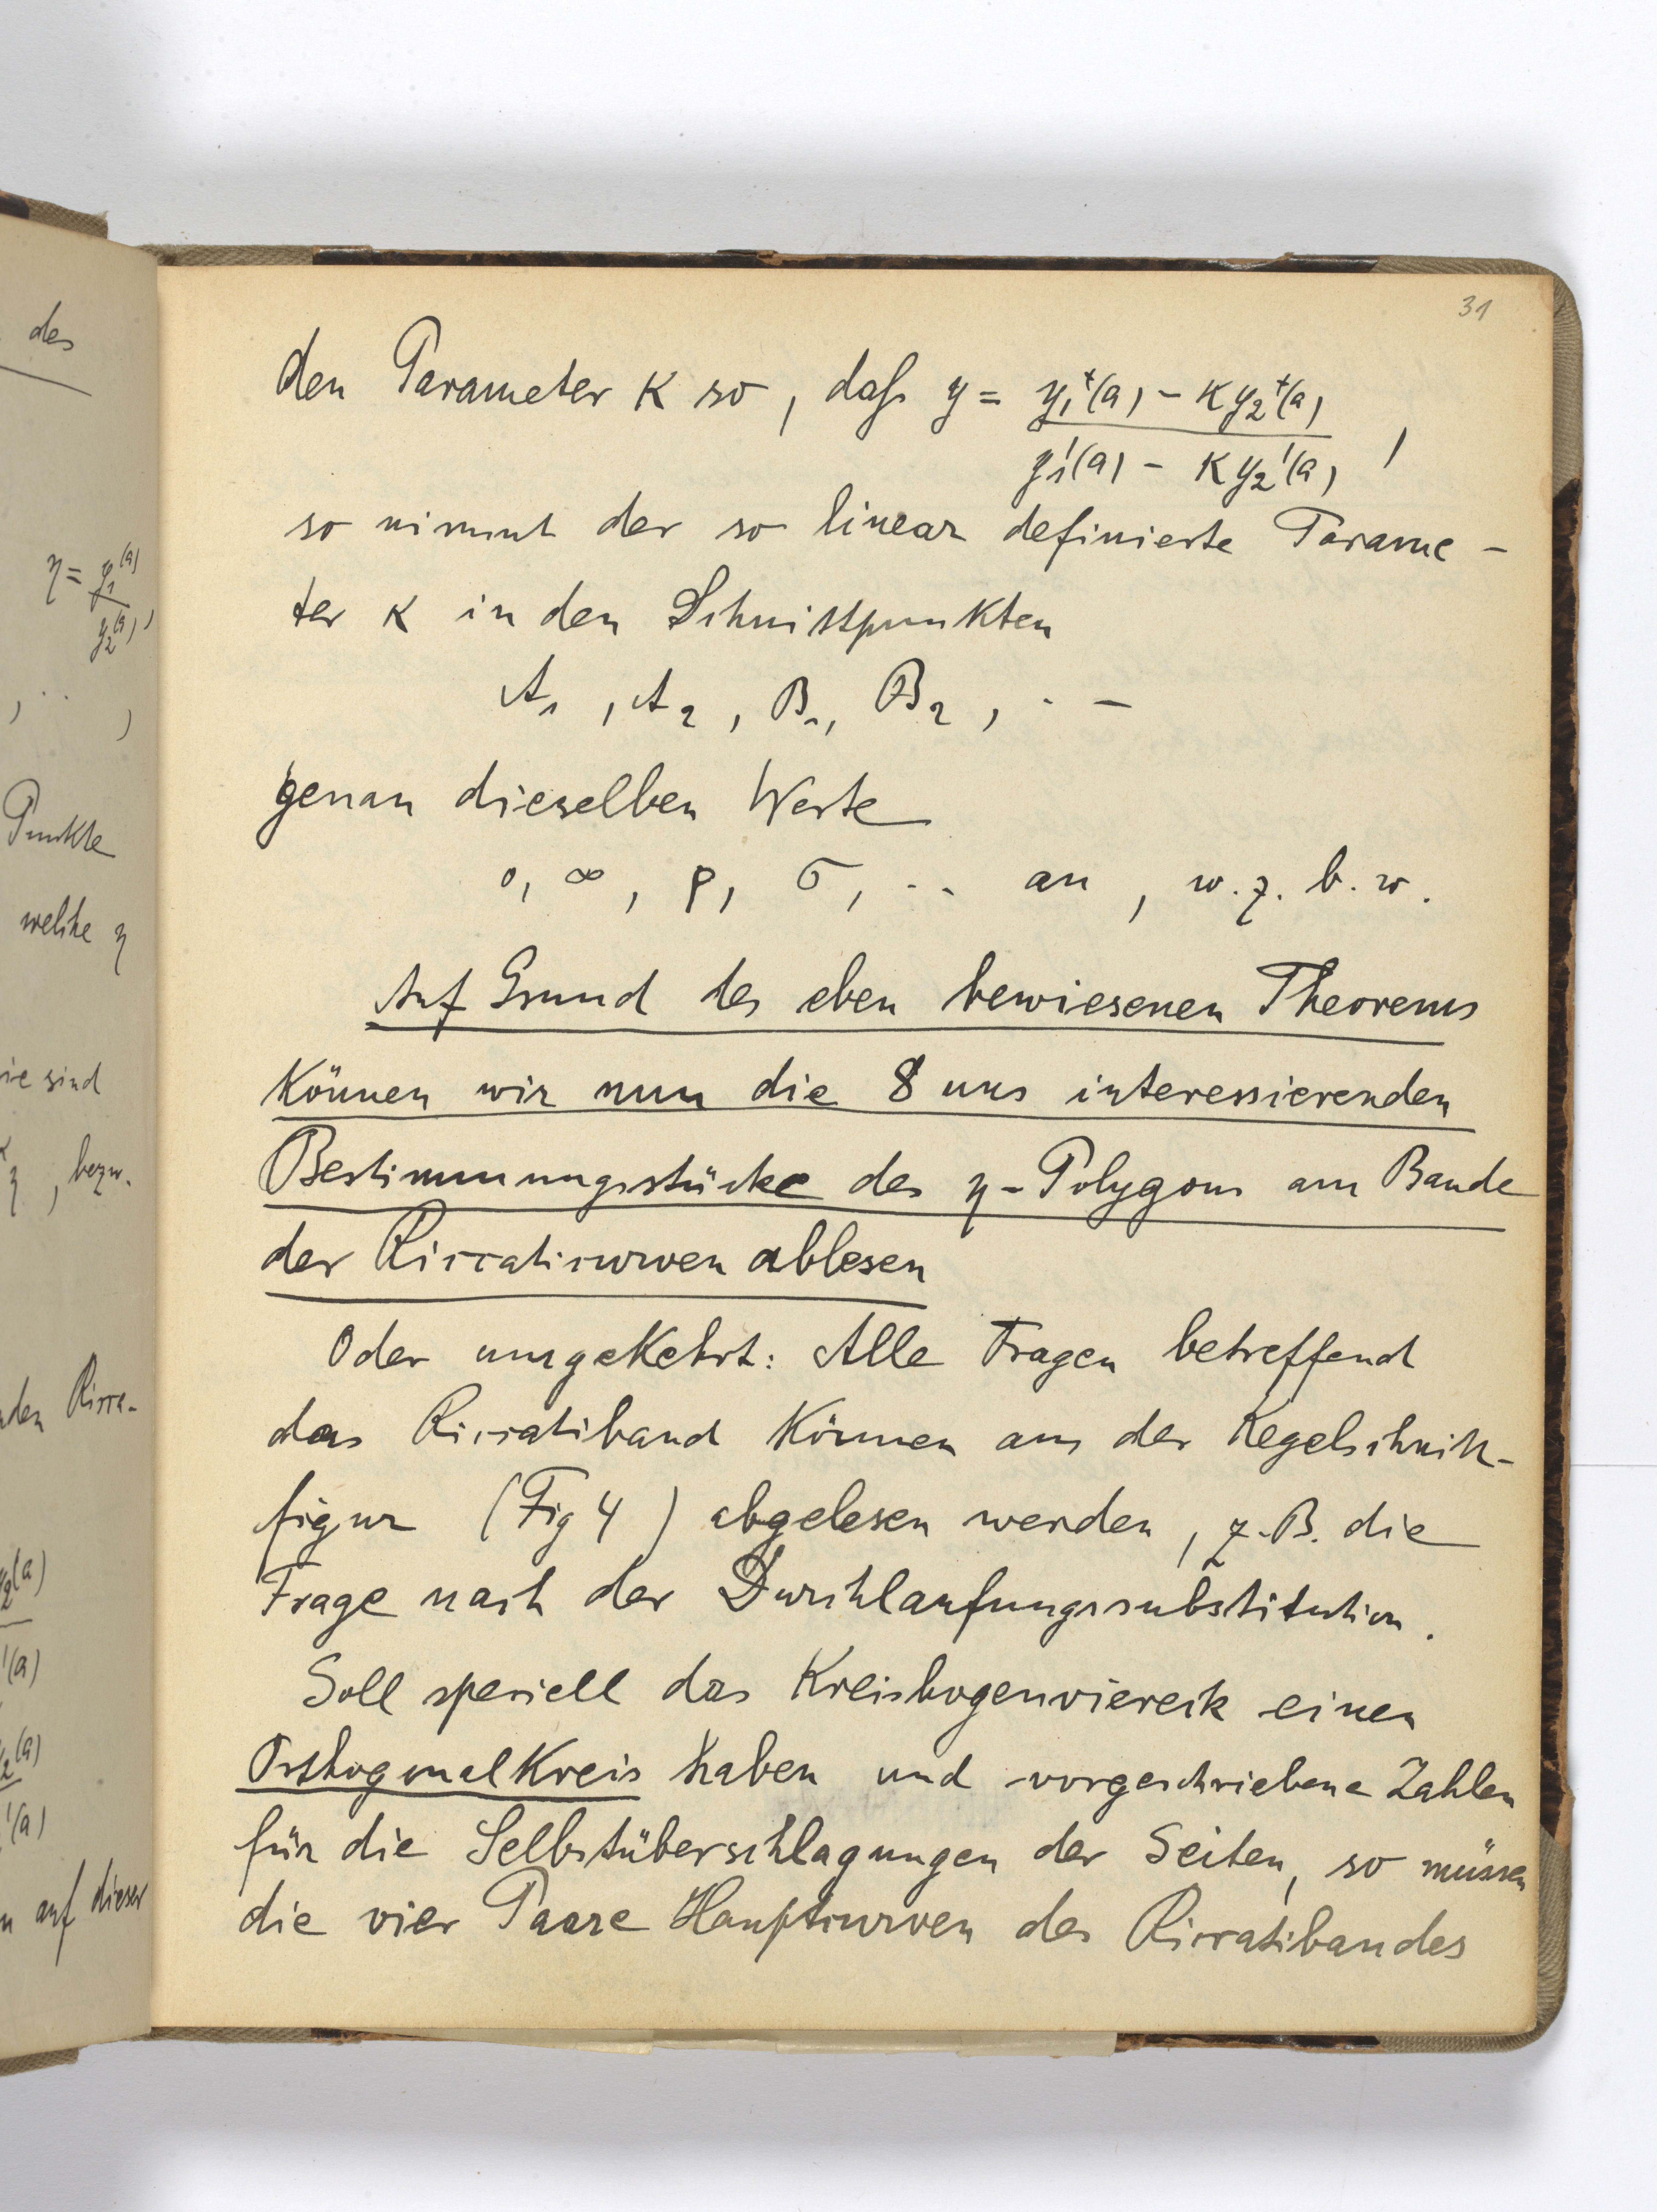 31
des
η = y₁(a)
y₂(a) ,
, . . ,
Punkte
welche η
sind
η , bezw.
den Ricca-
y₂(a)
'(a)
y₂(a)
'(a)
auf dieser
den Parameter K so, daß y = y₁⁺(a) - K y₂⁺(a)
y₁'(a) - K y₂'(a) ,
so nimmt der so linear definierte Parame-
ter K in den Schnittpunkten
A₁ , A₂ , B₁, B₂ , . —
genau dieselben Werte
0, ∞, ρ, σ, .. an , w. z. b. w.
Auf Grund des eben bewiesenen Theorems
können wir nun die 8 uns interessierenden
Bestimmungsstücke des η-Polygons am Bande
der Riccaticurven ablesen
Oder umgekehrt: Alle Fragen betreffend
das Riccatiband können aus der Kegelschnitt-
figur (Fig 4) abgelesen werden, z. B. die
Frage nach der Durchlaufungssubstitution.
Soll speziell das Kreisbogenviereck einen
Orthogonalkreis haben und vorgeschriebene Zahlen
für die Selbstüberschlagungen der Seiten, so müssen
die vier Paare Hauptcurven des Riccatibandes